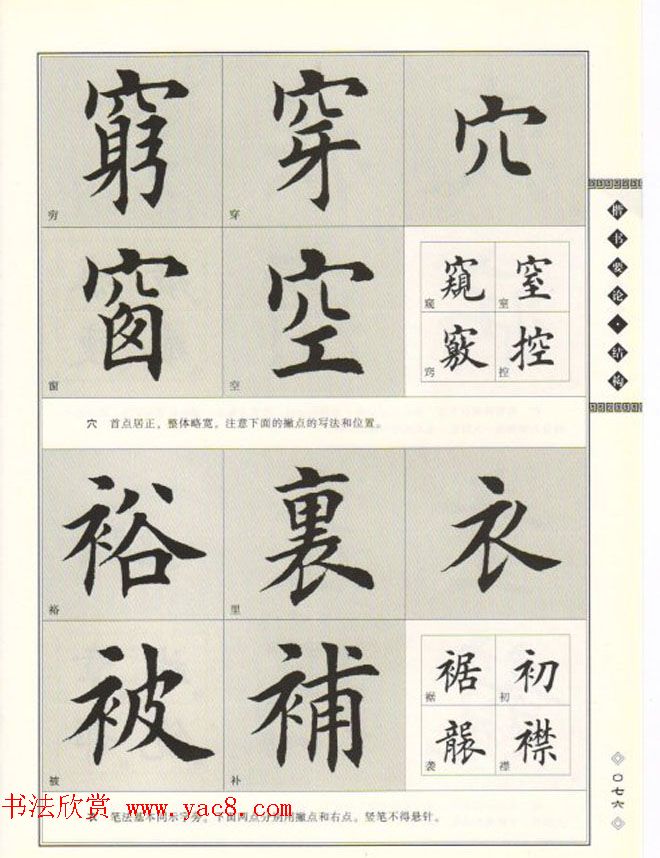 窮 穿 穴
穷 穿
窗 空 窺 窒
窥 室
竅 控
窗 空 窍 控
穴 首点居正，整体略宽，注意下面的撇点的写法和位置。
裕 裏 衣
裕 里
被 補 裾 初
裾 初
襲 襟
被 补 袭 襟
衣 笔法基本同示字旁，下面两点分别用撇点和右点，竖笔不得悬针。
楷书要论·结构
〇七六
书法欣赏 www.yac8.com